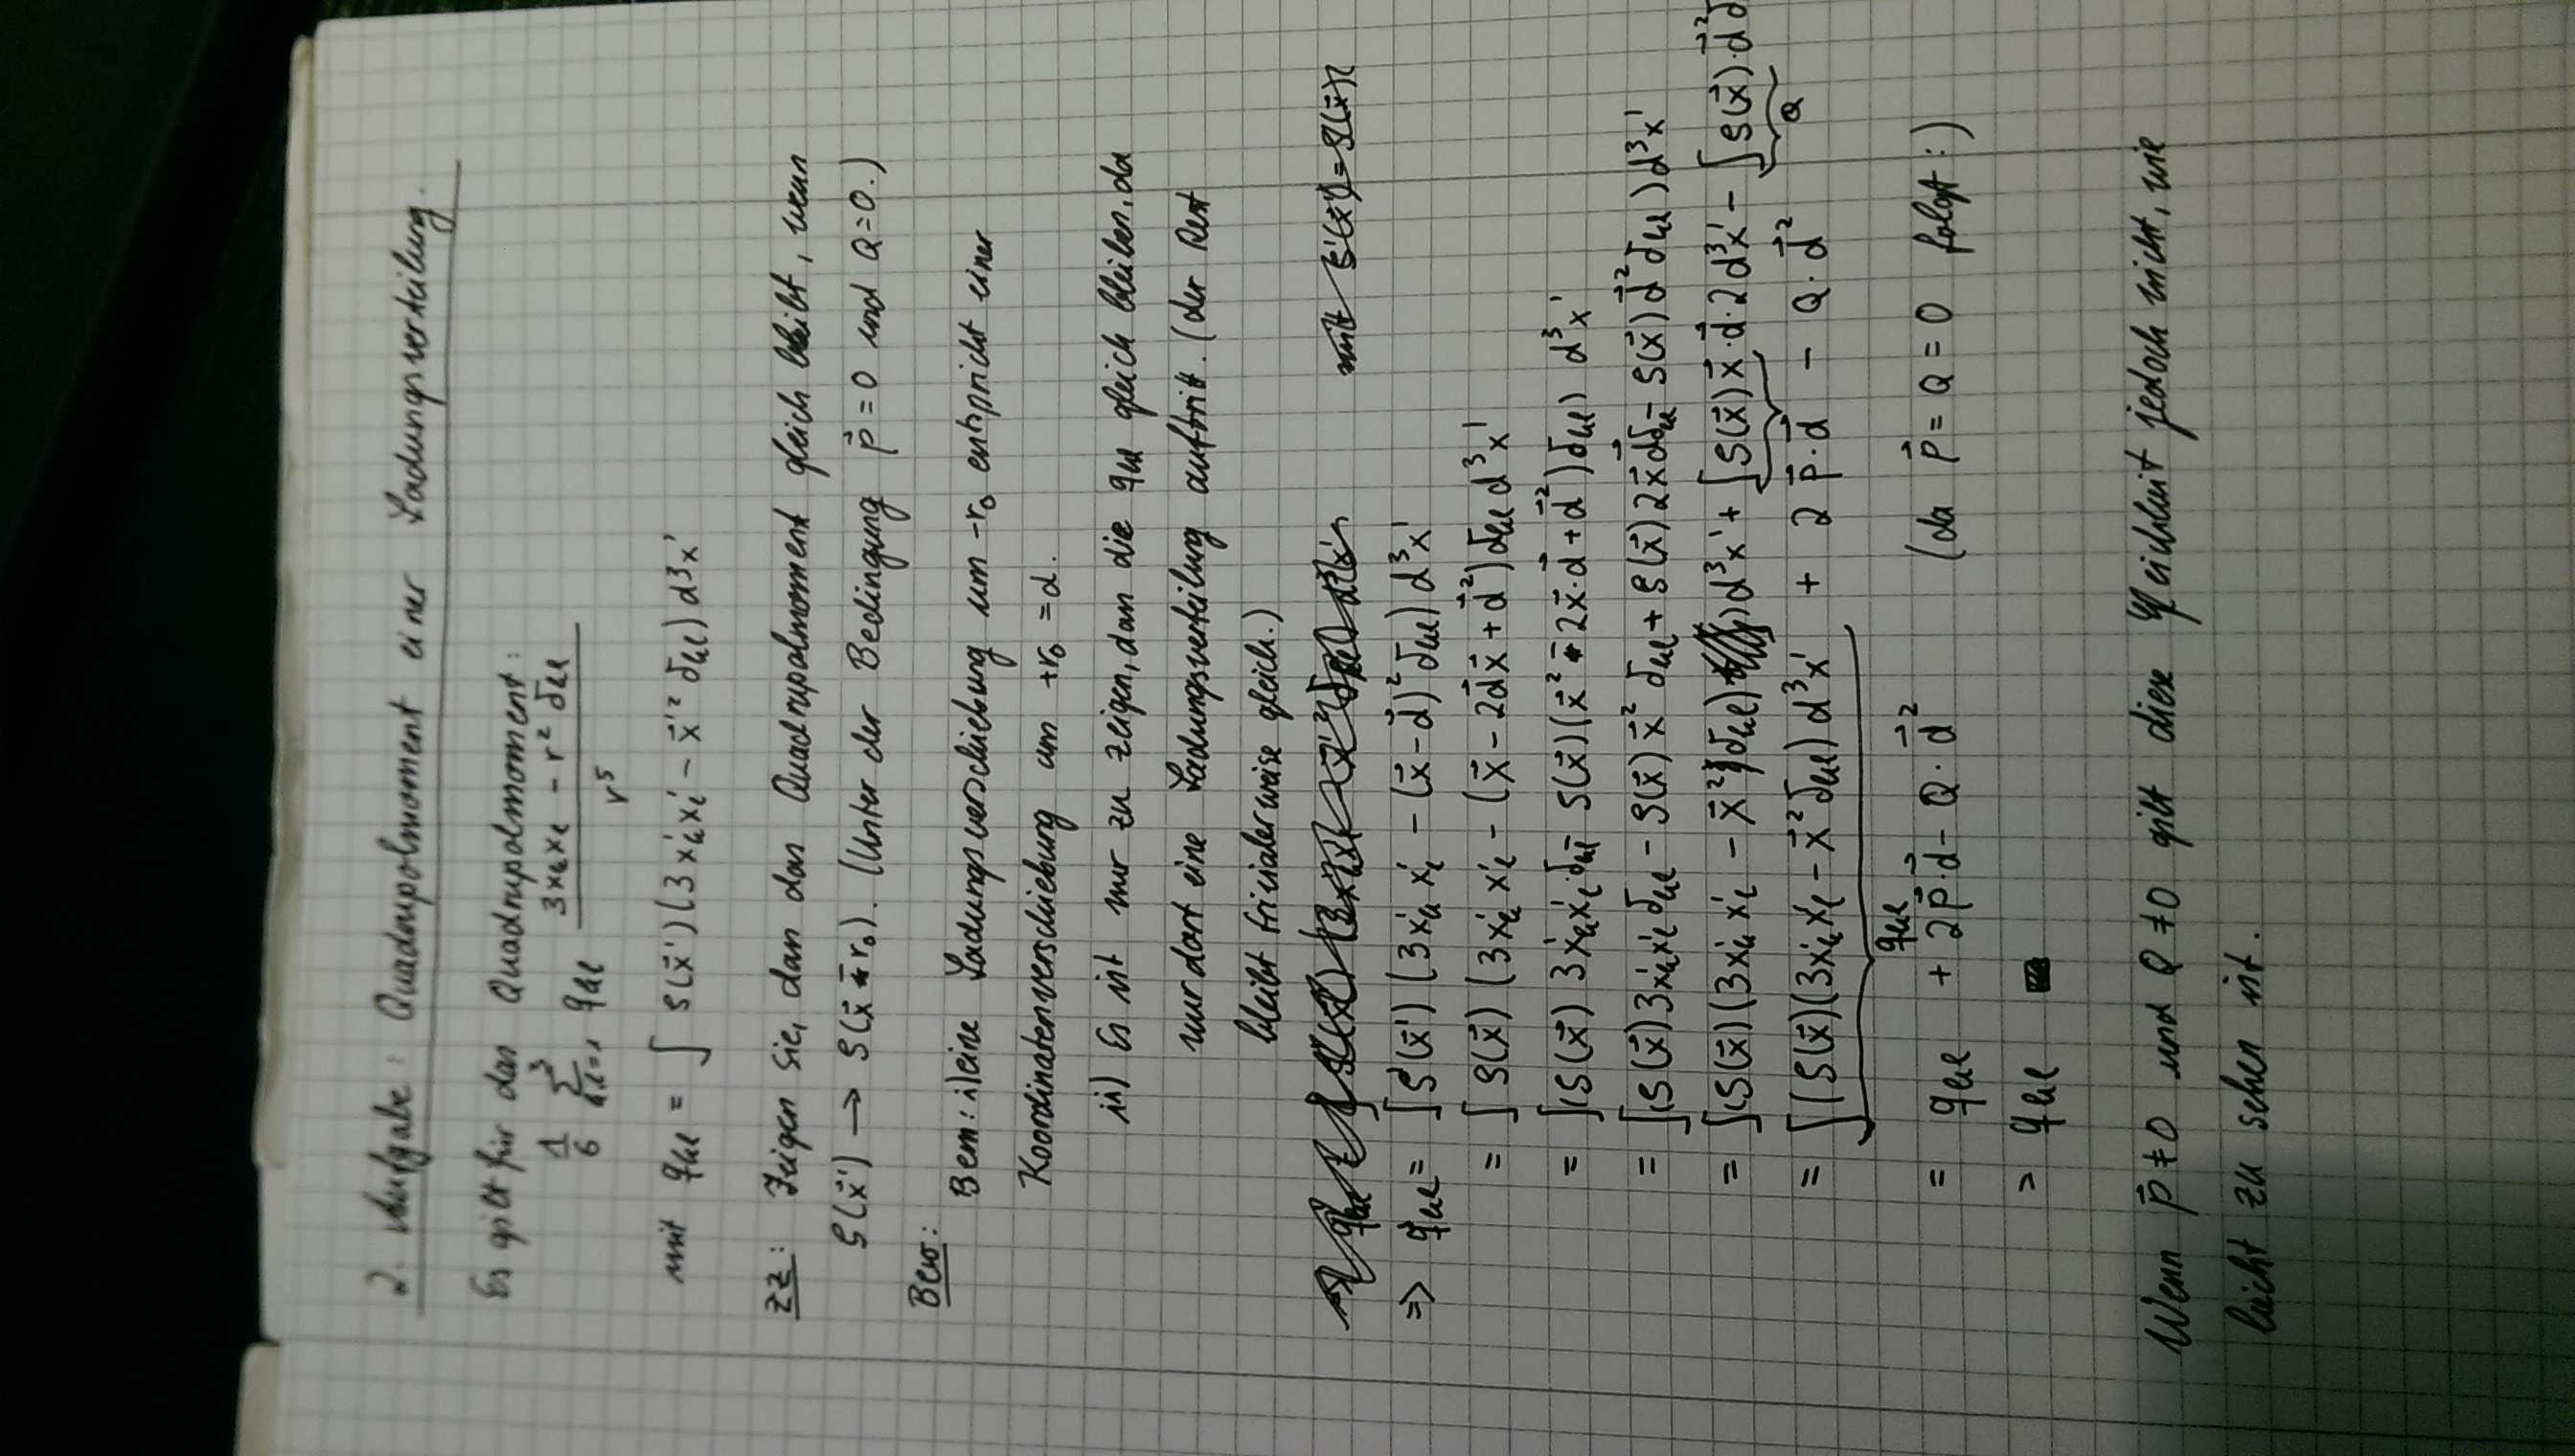 2. Aufgabe: Quadrupolmoment einer Ladungsverteilung.
Es gilt für das Quadrupolmoment:
1/6 ∑_{k,l=1}^3 q_kl (3x_k x_l − r² δ_kl)/r⁵
mit q_kl = ∫ ρ(x⃗')(3x'_k x'_l − x⃗'² δ_kl) d³x'
ZZ: Zeigen Sie, dan das Quadrupolmoment gleich bleibt, wenn
ρ(x⃗') → ρ(x⃗ − r₀). (Unter der Bedingung p⃗ = 0 und Q = 0.)
Bew:
Bem: i) eine Ladungsverschiebung um −r₀ entspricht einer
Koordinatenverschiebung um +r₀ = d.
ii) Es ist nur zu zeigen, dan die q_kl gleich bleiben, da
nur dort eine Ladungsverteilung auftritt. (der Rest
bleibt trivialerweise gleich.)
mit ρ'(x⃗') = ρ(x⃗)
=> q'_kl = ∫ ρ'(x⃗') (3x'_k x'_l − (x⃗ − d⃗)² δ_kl) d³x'
= ∫ ρ(x⃗) (3x'_k x'_l − (x⃗ − 2d⃗x⃗ + d⃗²) δ_kl d³x'
= ∫(ρ(x⃗) 3x'_k x'_l δ_kl − ρ(x⃗)(x⃗² − 2x⃗·d⃗ + d⃗²) δ_kl) d³x'
= ∫(ρ(x⃗) 3x'_k x'_l δ_kl − ρ(x⃗) x⃗² δ_kl + ρ(x⃗) 2x⃗d⃗δ_kl − ρ(x⃗) d⃗² δ_kl) d³x'
= ∫(ρ(x⃗)(3x'_k x'_l − x⃗² δ_kl) d³x' + ∫ρ(x⃗) x⃗·d⃗·2d³x' − ∫ρ(x⃗)·d⃗² d
Q
= ∫(ρ(x⃗)(3x'_k x'_l − x⃗² δ_kl) d³x' + 2 p⃗·d⃗ − Q·d⃗²
q_kl
= q_kl + 2p⃗·d⃗ − Q·d⃗² (da p⃗ = Q = 0 folgt:)
= q_kl ■
Wenn p⃗ ≠ 0 und Q ≠ 0 gilt diese Gleichheit jedoch nicht, wie
leicht zu sehen ist.